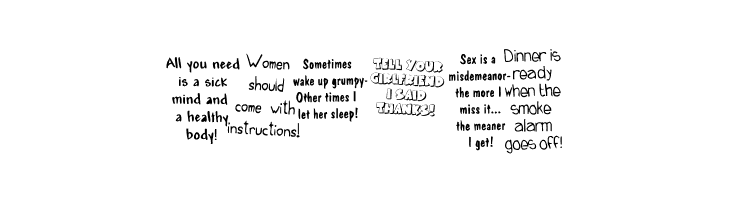 All you need
is a sick
mind and
a healthy
body!
Women
should
come with
instructions!
Sometimes
wake up grumpy-
Other times I
let her sleep!
TELL YOUR
GIRLFRIEND
I SAID
THANKS!
Sex is a
misdemeanor-
the more I
miss it...
the meaner
I get!
Dinner is
ready
when the
smoke
alarm
goes off!